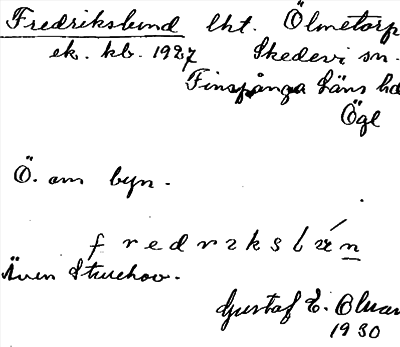 Fredrikslund lht. Ölmetorp
ek. kb. 1927 Skedevi sn.
Finspånga läns hd
Ögl
Ö. om byn.
fredrıkslún
Även
Gustaf E.
1930